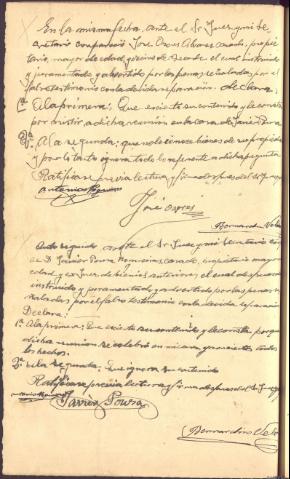 En la misma fecha, ante el Sr Juez y mi Se-
cretario comparece José Oscos Alvarez casado, propie
tario, mayor de edad y vecino de el cual instruido
y juramentado y advertido por las penas señaladas, por el
falso testimonio con la debida separación: declara:
1ª A la primera: Que es cierto su contenido y le consta
por asistir, a dicha reunión en la casa de Javier Pousa
2ª A la segunda; que no conoce bienes de su propiedad
y por lo tanto ignora todo lo referente a dicha pregunta
Ratificase previa lectura y firma despues del Sr Juez
José Oscos
Bernardino
Acto seguido ante el Sr Juez y mi Secretario com
ce D Javier Pousa casado, propietario mayor
edad y ex Juez de bienios anteriores, el cual despues de
instruido y juramentado y advertido por las penas se
ñaladas por el falso testimonio con la debida separación
Declara:
1ª A la primera: Que es cierto su contenido y le consta porque
dicha reunion se celebro en mi casa y presencie todos
los hechos.
2ª A la segunda: que ignora su contenido
Ratificase previa lectura y firma despues del Sr Juez
Javier Pousa
Bernardino